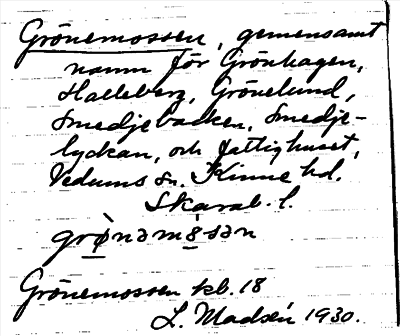 Grönemossen, gemensamt
namn för Grönhagen,
Halleberg, Grönelund,
Smedjebacken, Smedje-
lyckan, och fattighuset,
Vedums sn. Kinne hd.
Skarab. l.
grø̀nəmͅsən
Grönemossen kb. 18
L. Madsén 1930.